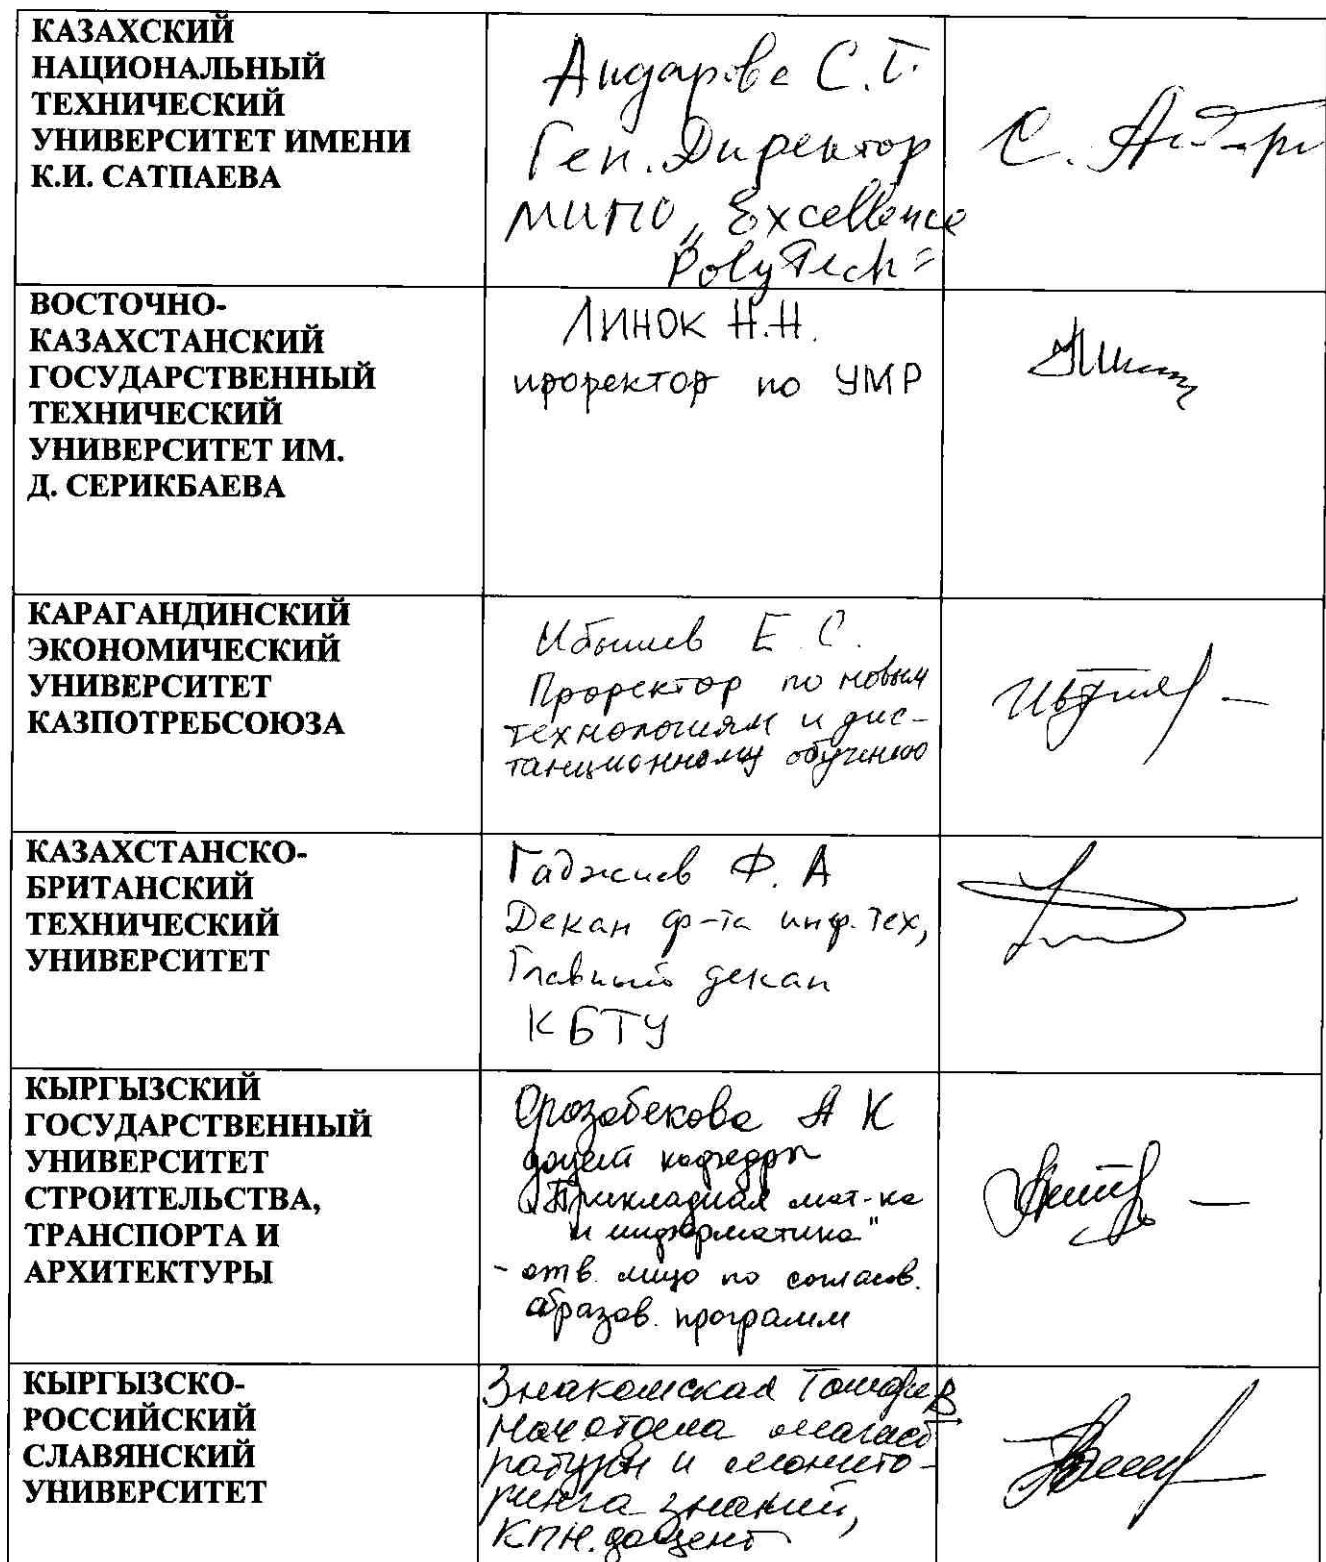 КАЗАХСКИЙ
НАЦИОНАЛЬНЫЙ
ТЕХНИЧЕСКИЙ
УНИВЕРСИТЕТ ИМЕНИ
К.И. САТПАЕВА
С.Т.
Ген. Директор
МИПО „Excellence
PolyTech"
ВОСТОЧНО-
КАЗАХСТАНСКИЙ
ГОСУДАРСТВЕННЫЙ
ТЕХНИЧЕСКИЙ
УНИВЕРСИТЕТ ИМ.
Д. СЕРИКБАЕВА
ЛИНОК Н.Н.
проректор по УМР
КАРАГАНДИНСКИЙ
ЭКОНОМИЧЕСКИЙ
УНИВЕРСИТЕТ
КАЗПОТРЕБСОЮЗА
Ибышев Е.С.
Проректор по новым
технологиям и дис-
танционному обучению
КАЗАХСТАНСКО-
БРИТАНСКИЙ
ТЕХНИЧЕСКИЙ
УНИВЕРСИТЕТ
Гаджиев Ф.А
Декан ф-та инф. тех,
Главный декан
КБТУ
КЫРГЫЗСКИЙ
ГОСУДАРСТВЕННЫЙ
УНИВЕРСИТЕТ
СТРОИТЕЛЬСТВА,
ТРАНСПОРТА И
АРХИТЕКТУРЫ
Орозобекова А К
доцент кафедры
„Прикладная мат-ка
и информатика"
- отв. лицо по соглас.
образов. программ
КЫРГЫЗСКО-
РОССИЙСКИЙ
СЛАВЯНСКИЙ
УНИВЕРСИТЕТ
Нач отдела магист
ратуры и монито-
ринга знаний,
КПН. доцент